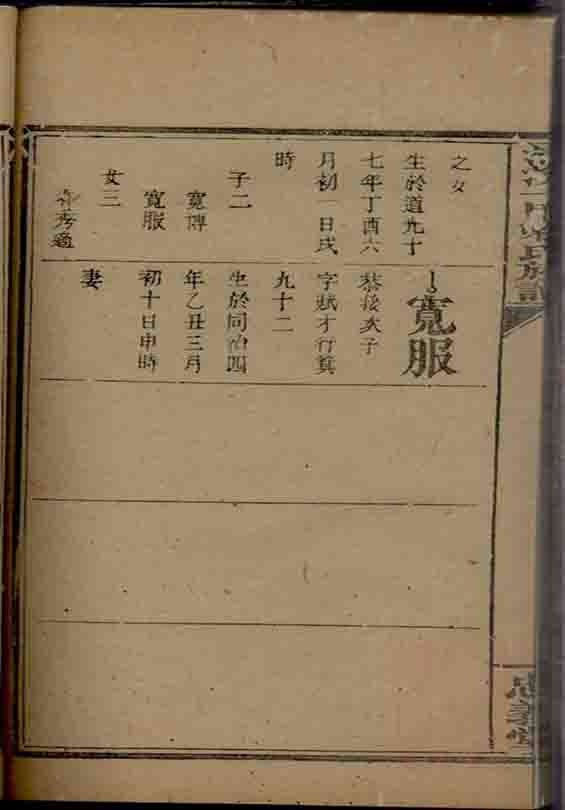 氏族譜
忠義堂
之女
生於道光十
七年丁酉六
月初一日戌
時
子二
寬博
寬服
女三
秀適
寬服
次子
字賦才行冀
九十二
生於同治四
年乙丑三月
初十日申時
妻